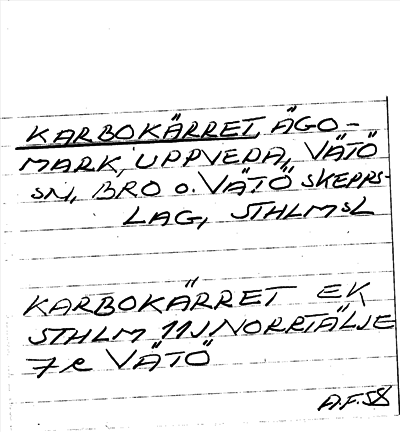 KARBOKÄRRET, ÄGO-
MARK, UPPVEDA, VÄTÖ
SN, BRO o. VÄTÖ SKEPPS-
LAG, STHLMSL
KARBOKÄRRET EK
STHLM 11J NORRTÄLJE
7e VÄTÖ
A.F.58